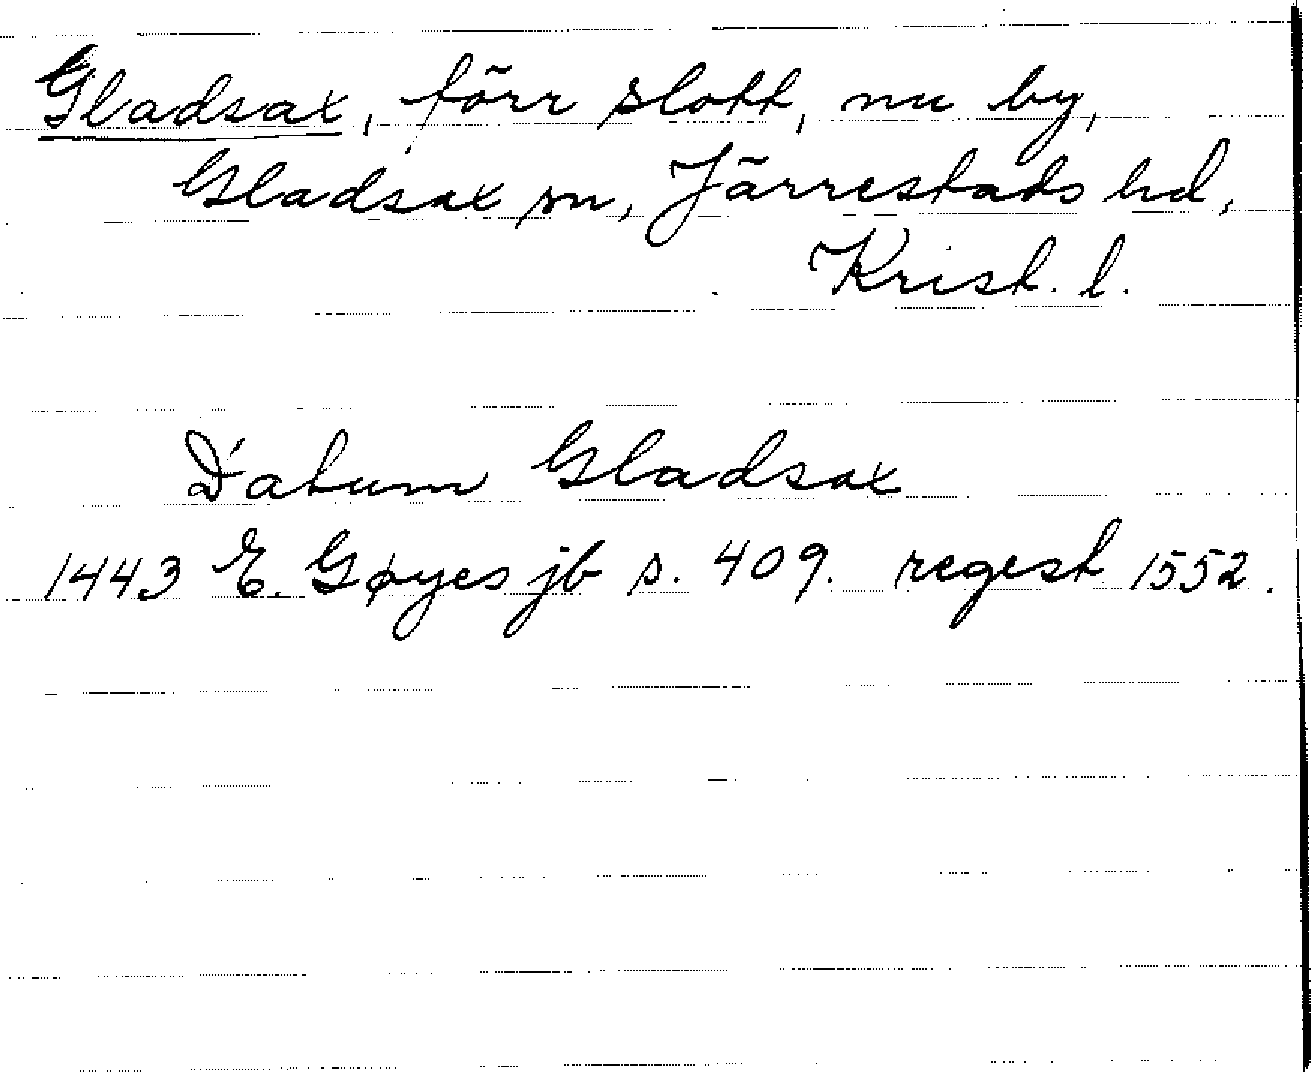 Gladsax, förr slott, nu by,
Gladsax sn, Järrestads hd,
Krist. l.
Datum Gladsax
1443 E. Gøyes jb s. 409. regest 1552.